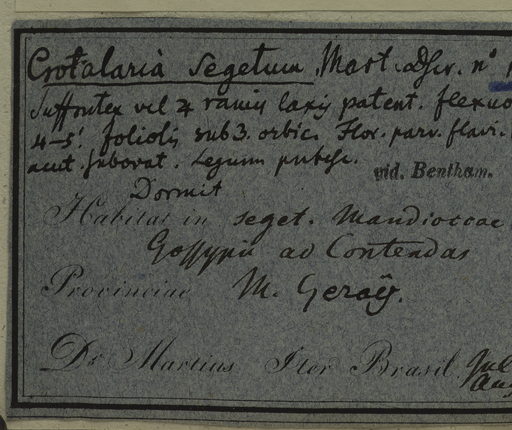 Crotalaria segetum Mart. Obsv. nº
Suffrutex vel ♃ ramis laxis patent. flexuo
4-5'. foliolis sub3. orbic. Flor. parv. flavi.
acut. subovat. Legum pubesc.
vid. Bentham.
Dormit
Habitat in seget. Mandioccae
Gossypii ad Contendas
Provinciae M. Geraës.
Dr Martius Iter Brasil. Jul
Aug